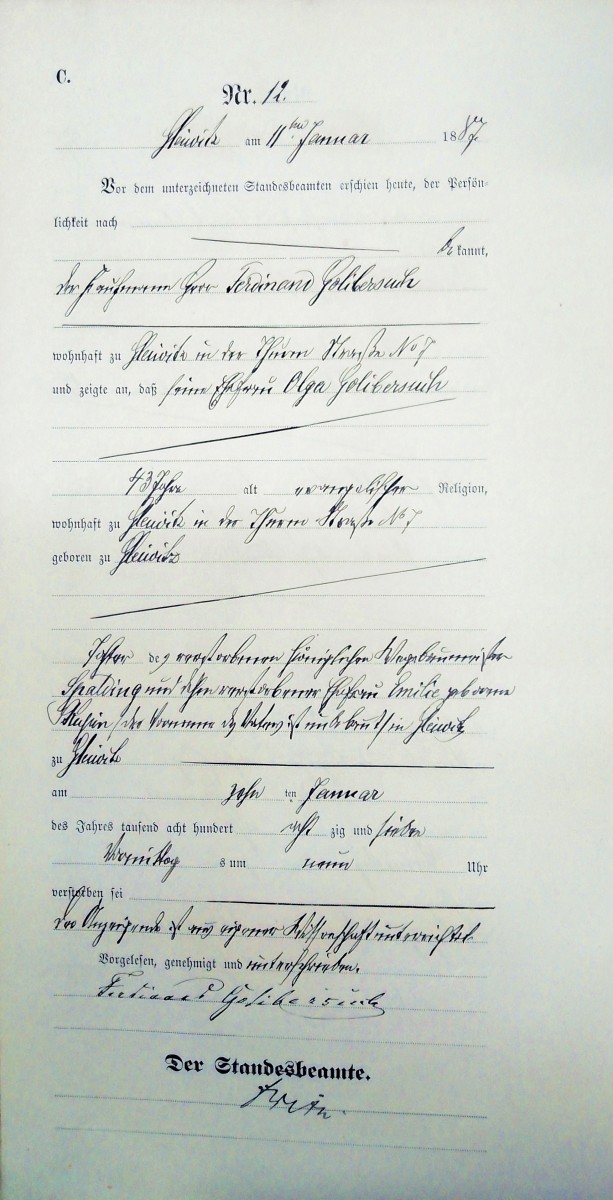 C.
Nr. 12.
Gleiwitz am 11ten Januar 1887.
Vor dem unterzeichneten Standesbeamten erschien heute, der Persön-
lichkeit nach
bekannt,
der Kaufmann Herr Ferdinand Golibersuch
wohnhaft zu Gleiwitz in der Thurm Straße No 7
und zeigte an, daß seine Ehefrau Olga Golibersuch
43 Jahre alt evangelischer Religion,
wohnhaft zu Gleiwitz in der Thurm Straße No 7
geboren zu Gleiwitz
Tochter des verstorbenen Königlichen Wegebaumeister
Spalding und dessen verstorbener Ehefrau Emilie geborene
(der Vorname des Vaters ist unbekannt) in Gleiwitz
zu Gleiwitz
am zehn ten Januar
des Jahres tausend acht hundert acht zig und sieben
Vormittags um neun Uhr
verstorben sei
Der Anzeigende ist aus eigener Wissenschaft unterrichtet.
Vorgelesen, genehmigt und unterschrieben.
Ferdinand Golibersuch
Der Standesbeamte.